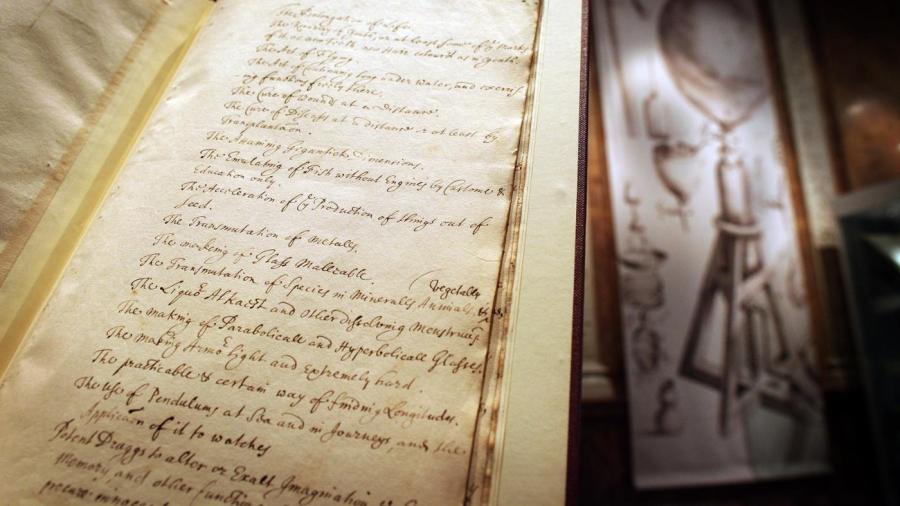 The Prolongation of Life.
The Recovery of Youth, or at least some of ye Marks
of it, as new Teeth, new Hair colour'd as in youth.
The Art of Flying.
The Art of Continuing long under water, and exercising
functions freely there.
The Cure of Wounds at a Distance.
The Cure of Diseases at a distance or at least by
Transplantation.
The Attaining Gigantick Dimensions.
The Emulating of Fish without Engines by Custome &
Education only.
The Acceleration of ye Production of things out of
Seed.
The Transmutation of Metalls.
The makeing of Glass Malleable.
The Transmutation of Species in Mineralls, Animals, &
(Vegetalls.
The Liquid Alkaest and Other dissolving Menstruums.
The making of Parabolicall and Hyperbolicall Glasses.
The making Armor light and extremely hard.
The practicable & certain way of finding Longitudes.
The use of Pendulums at Sea and in Journeys, and the
Application of it to watches
Potent Druggs to alter or Exalt Imagination
Memory, and other functions
procure innocent